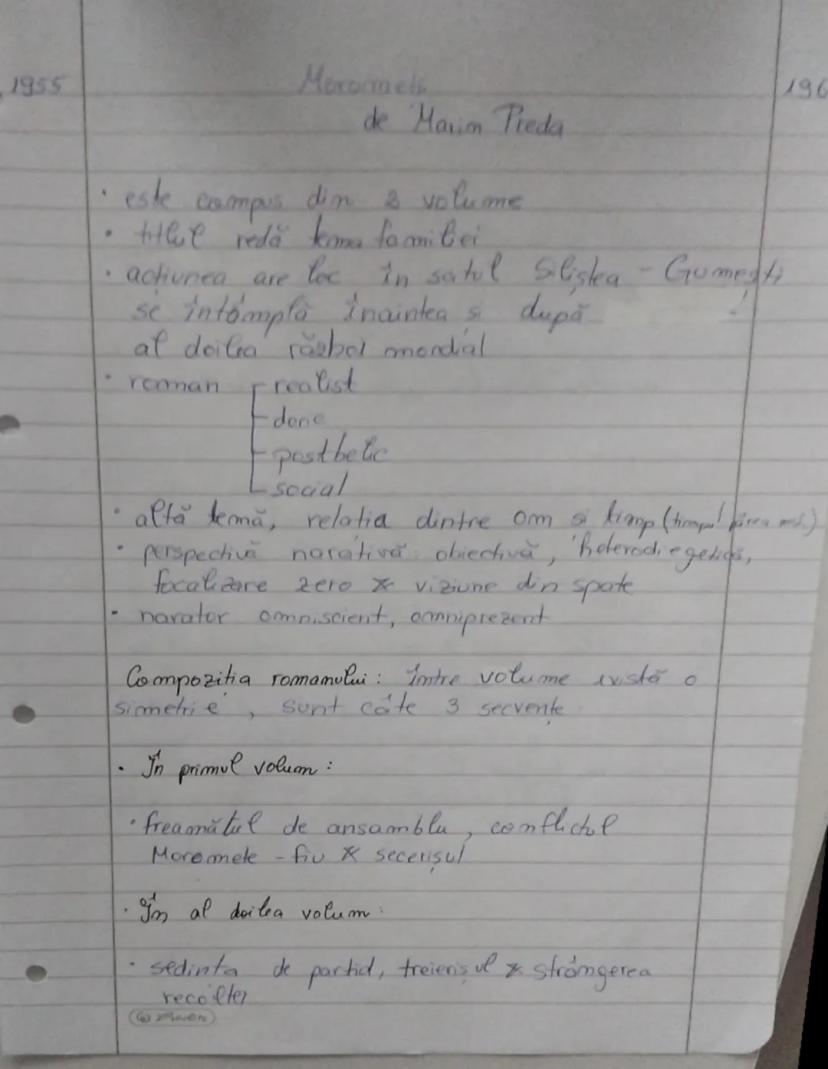 1955 Moromele 196
de Marin Preda
· este compus din 2 volume
· titlul redă tema familiei
· acțiunea are loc în satul Siliștea - Gumești
se întâmplă înaintea și după !
al doilea război mondial
· roman realist
doric
postbelic
social
· altă temă, relația dintre om și timp (timpul părea
· perspectivă narativă obiectivă, heterodiegetică,
focalizare zero & viziune din spate
· narator omniscient, omniprezent
Compoziția romanului: între volume există o
simetrie, sunt câte 3 secvențe
· În primul volum:
· freamătul de ansamblu, conflictul
Moromete - fiu & secerișul
· În al doilea volum:
· sedința de partid, treierișul & strângerea
recoltei